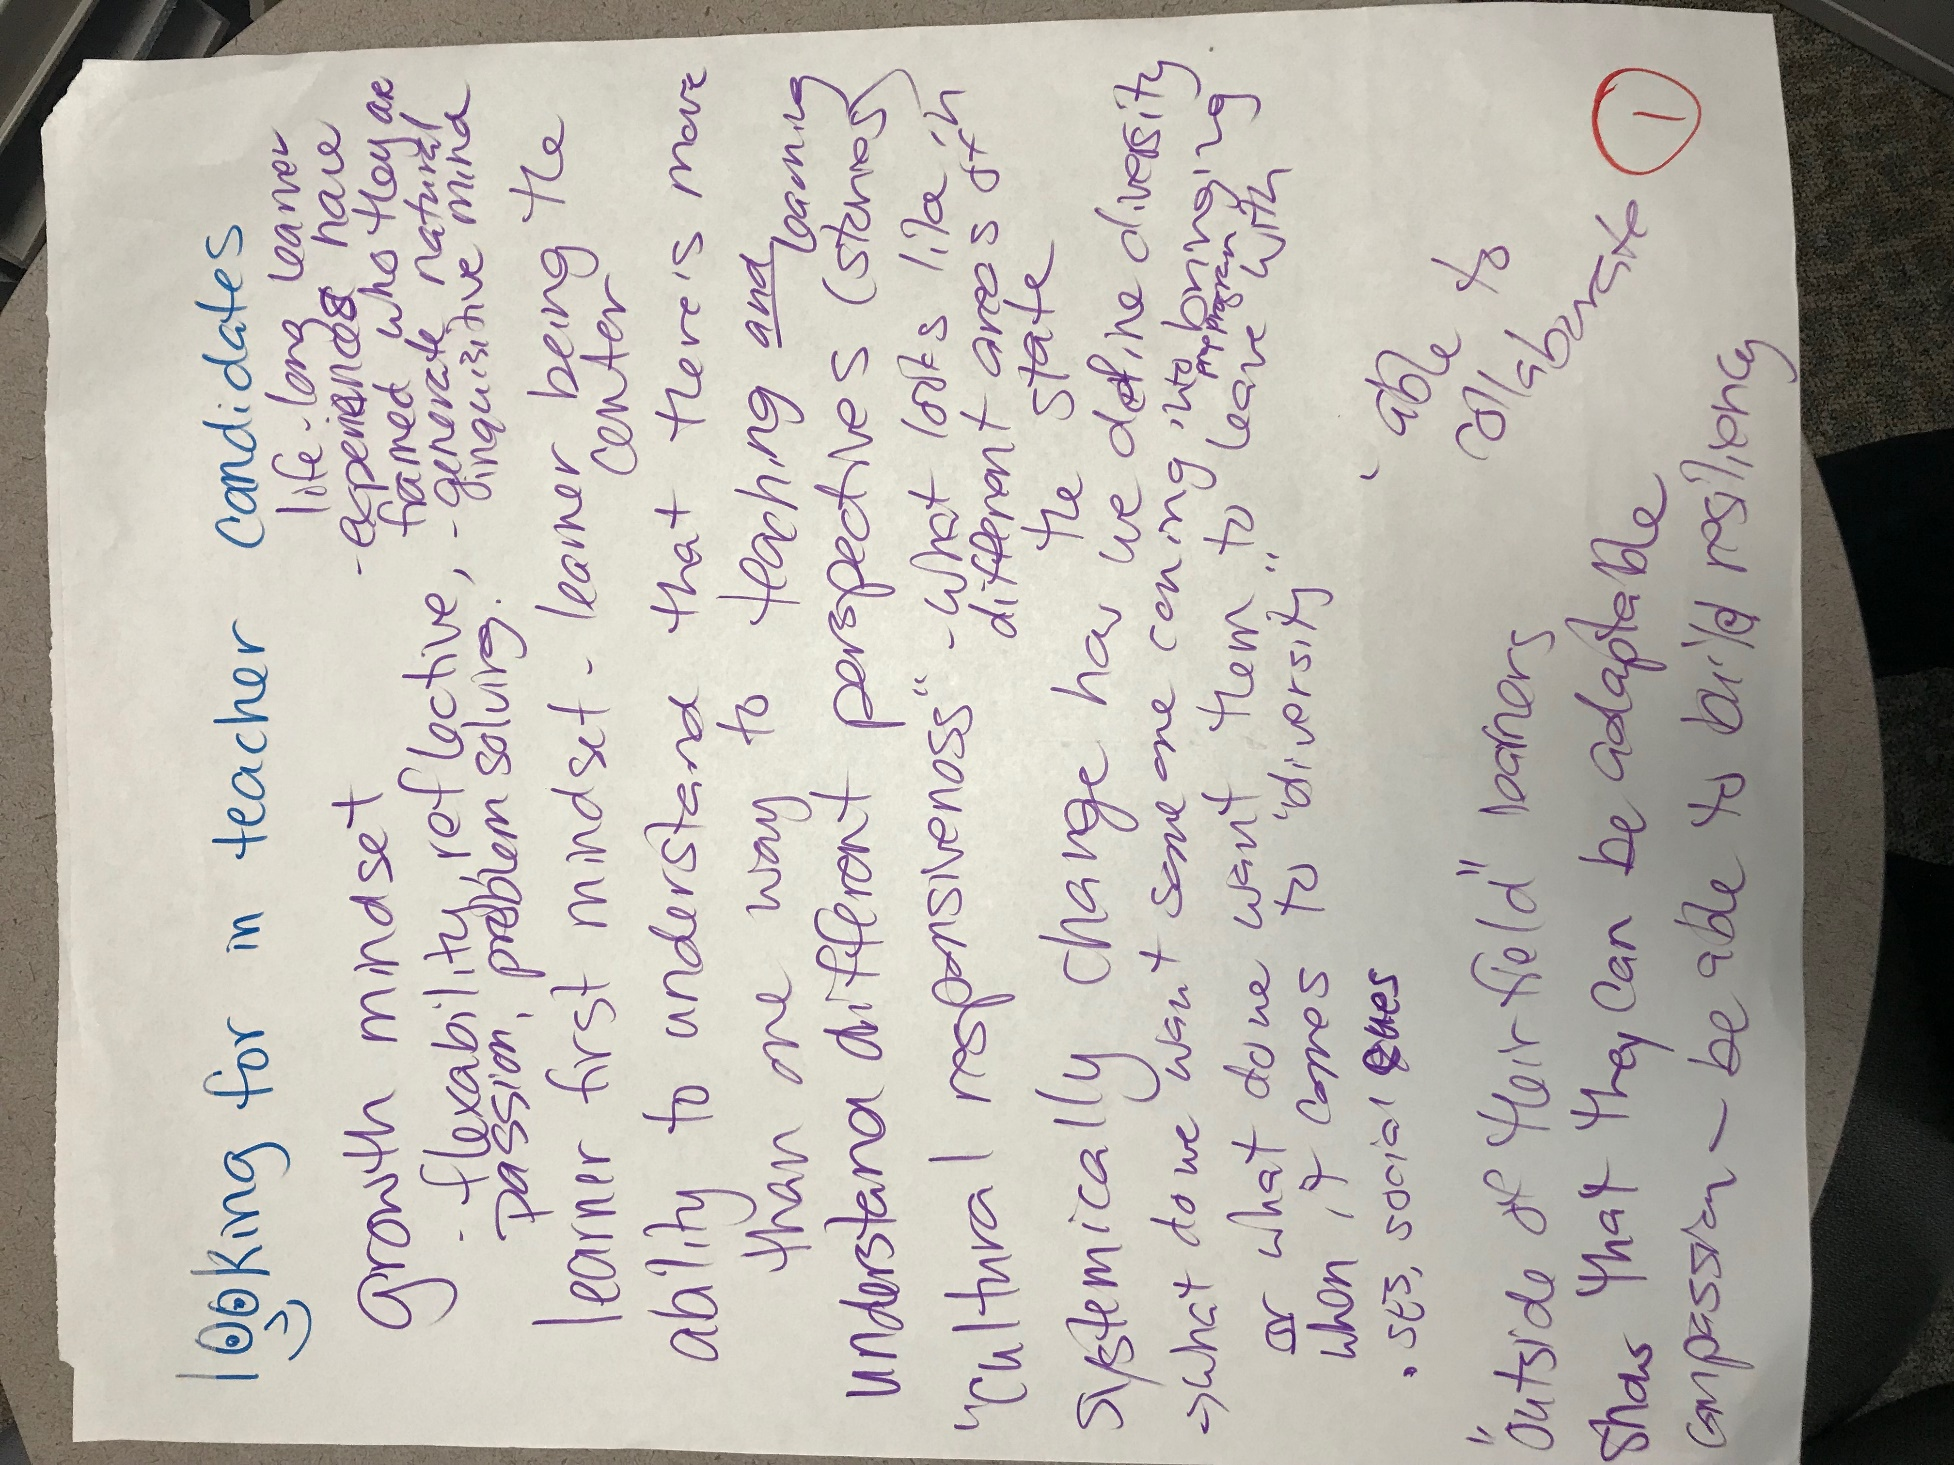 looking for in teacher candidates
growth mindset
life-long learner
- flexability, reflective,
passion, problem solving.
- experiences have
framed who they are
- generate natural
inquisitive mind
learner first mindset - learner being the
center
ability to understand that there's more
than one way to teaching and learning
understand different perspectives (stories)
"cultural responsiveness" - what looks like in
different areas of
the state
systemically change how we define diversity
→ what do we want someone coming into bringing
prep program
or what do we want them to leave with
when it comes to "diversity"
• SES, social
able to
collaborate
"outside of their field" learners
show that they can be adaptable
compassion - be able to build resiliency
1